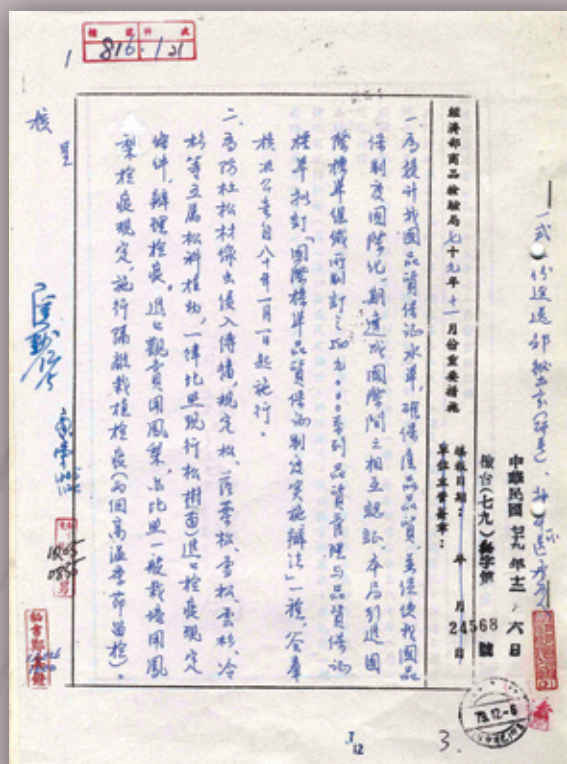 檔號件次
816.121
1
一式 份逕送部祕出
中華民國 廿九年 十二、六日
檢台(七九)秘字第 24568 號
填報日期： 年 月 日
單位主管簽章：
經濟部商品檢驗局七十九年十一月份重要措施
一、為提升我國品質保證水準，確保產品品質，並促使我國品
保制度國際化，期達成國際間之相互認証，本局引進國
際標準組織所制訂之ISO九〇〇〇系列品質管理與品質保証
標準，擬訂「國際標準品質保証制度實施辦法」一種，簽奉
核決公告自八十年一月一日起施行。
二、為防杜松材線虫侵入傳播，規定松、落葉松、雪松、雲杉、冷
杉等五屬松科植物，一律比照現行松樹(苗)進口檢疫規定
條件，辦理檢疫。進口觀賞用鳳梨，亦比照一般栽培用鳳
梨檢疫規定，施行隔離栽植檢疫(兩個高溫季節留檢)。
核
呈
1205
0850
79.12.-6
3.
12